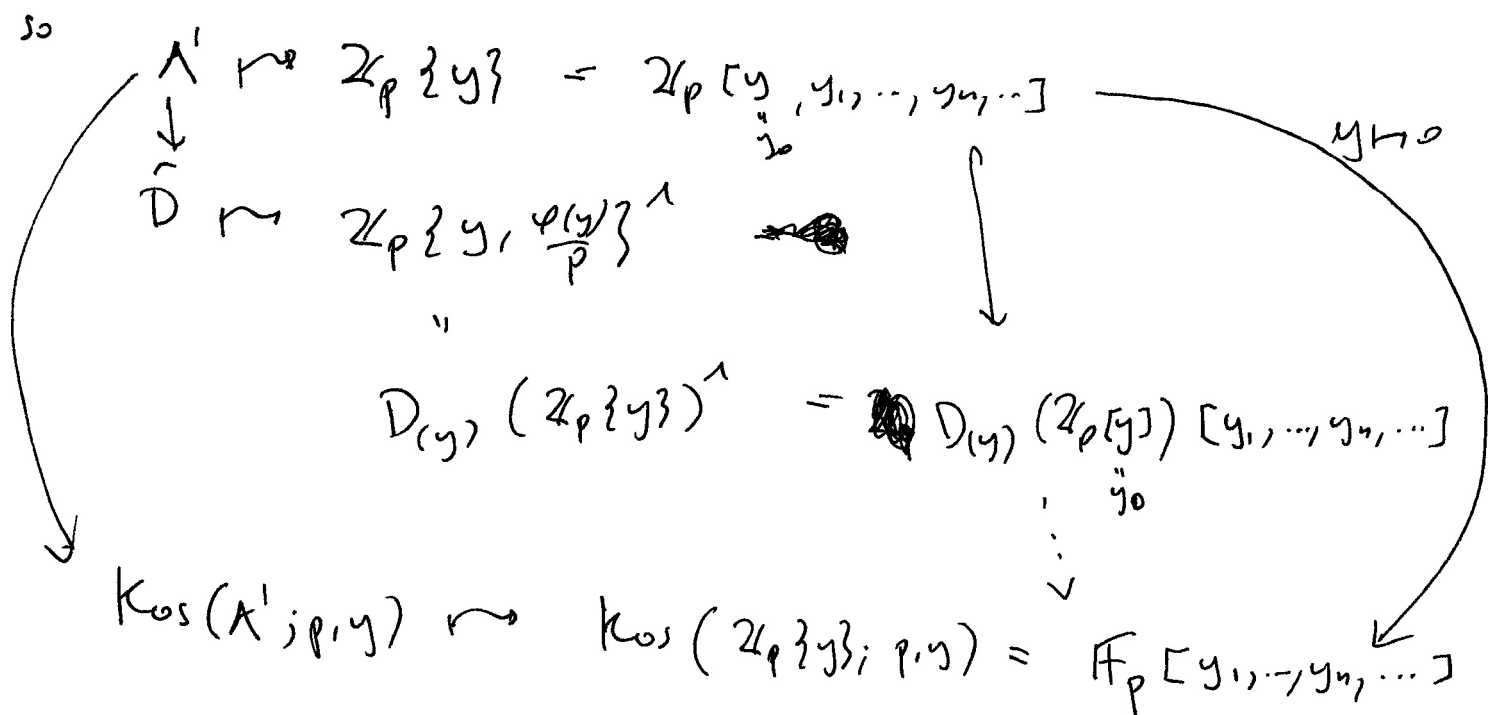 so
A' ↝ ℤ_p{y} = ℤ_p[y, y_1, .., y_n, ..]
" y_0
y ↦ 0
D̂ ↝ ℤ_p{y, φ(y)/p}^∧
"
D_(y)(ℤ_p{y})^∧ = D_(y)(ℤ_p[y])[y_1, .., y_n, ...]
" y_0
Kos(A'; p, y) ↝ Kos(ℤ_p{y}; p, y) = 𝔽_p[y_1, .., y_n, ...]